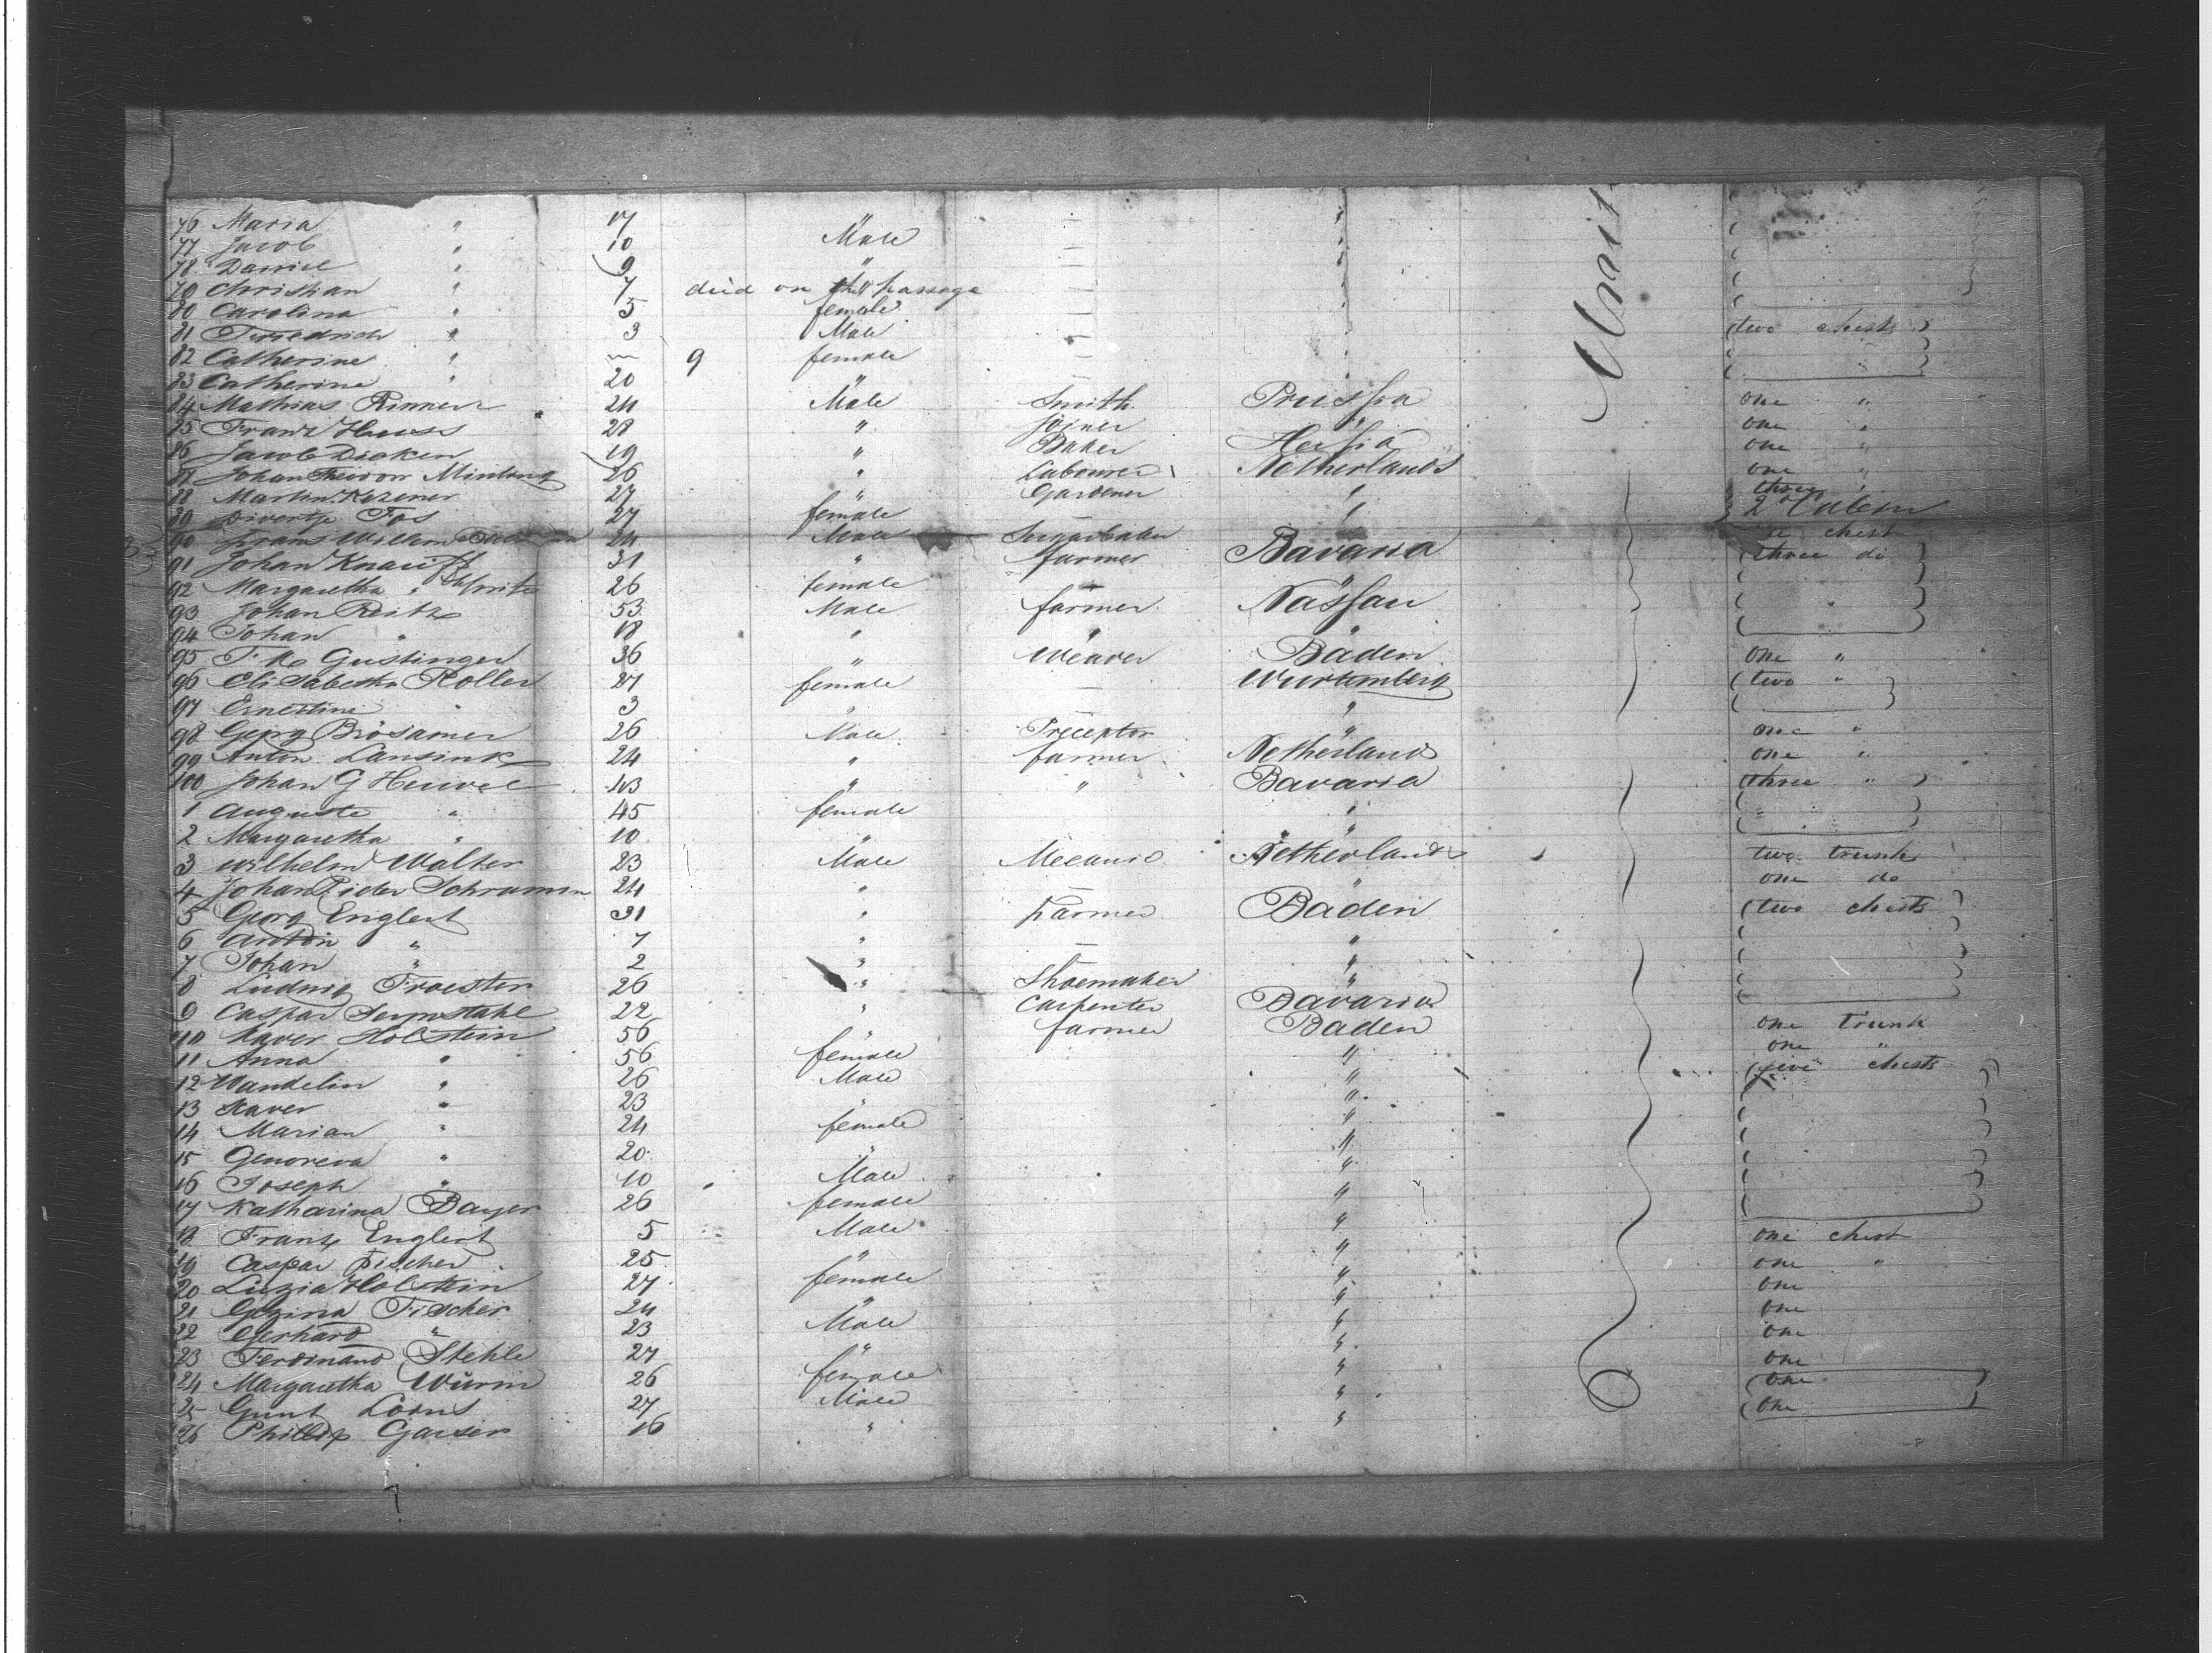 76 Maria " 17 " — "
77 Jacob " 10 Male — "
78 Daniel " 9 " — "
79 Christian " 7 died on the passage — "
80 Carolina " 5 female — "
81 Friedrich " 3 Male — " (two chests)
82 Catherine " 9 female — "
83 Catherine " 20 " "
84 Mathias 24 Male Smith Prussia one "
85 Franz 28 " Joiner " one "
86 Jacob 19 " Baker Hessia one "
87 Johan 26 " Labourer Netherlands one "
88 Martin 27 " Gardener " three "
89 Fos 27 female " 2d Cabin
90 Frans Willem 24 Male chest
91 Johan Knauff 31 " farmer Bavaria (three do)
92 Margaretha " 26 female "
93 Johan Reitz 53 Male farmer Nassau "
94 Johan " 18 " " "
95 Gustinger 36 " Weaver Baden one "
96 Elisabetha Roller 27 female — Wurtemberg (two "
97 Ernestine " 3 " "
98 Georg Brösamer 26 Male Preceptor " one "
99 Anton Lansink 24 " farmer Netherlands one "
100 Johan G Heuvel 43 " " Bavaria (three ")
1 Auguste " 45 female "
2 Margaretha " 10 " "
3 Wilhelm Walter 23 Male Mecanic Netherlands two trunks
4 Johan Pieter Schramm 24 " " one do
5 Georg Englert 31 " Farmer Baden (two chests)
6 Anton " 7 " — "
7 Johan " 2 " — "
8 Ludwig Froester 26 " Shoemaker "
9 Caspar 22 " Carpenter Bavaria
10 Xaver Holstein 56 " farmer Baden one Trunk
11 Anna " 56 female " one "
12 Wandelin " 26 Male " (five chests
13 Xaver " 23 " "
14 Marian " 24 female "
15 Genoveva " 20 " "
16 Joseph " 10 Male "
17 Katharina Bayer 26 female "
18 Franz Englert 5 Male " one chest
19 Caspar Fischer 25 " " one "
20 Luzia Holstein 27 female " one
21 Fischer 24 " " one
22 Gerhard " 23 Male " one
23 Ferdinand Stehle 27 " " one
24 Margaretha Würm 26 female " (one
25 27 Male " (one
26 Phillip 16 " "